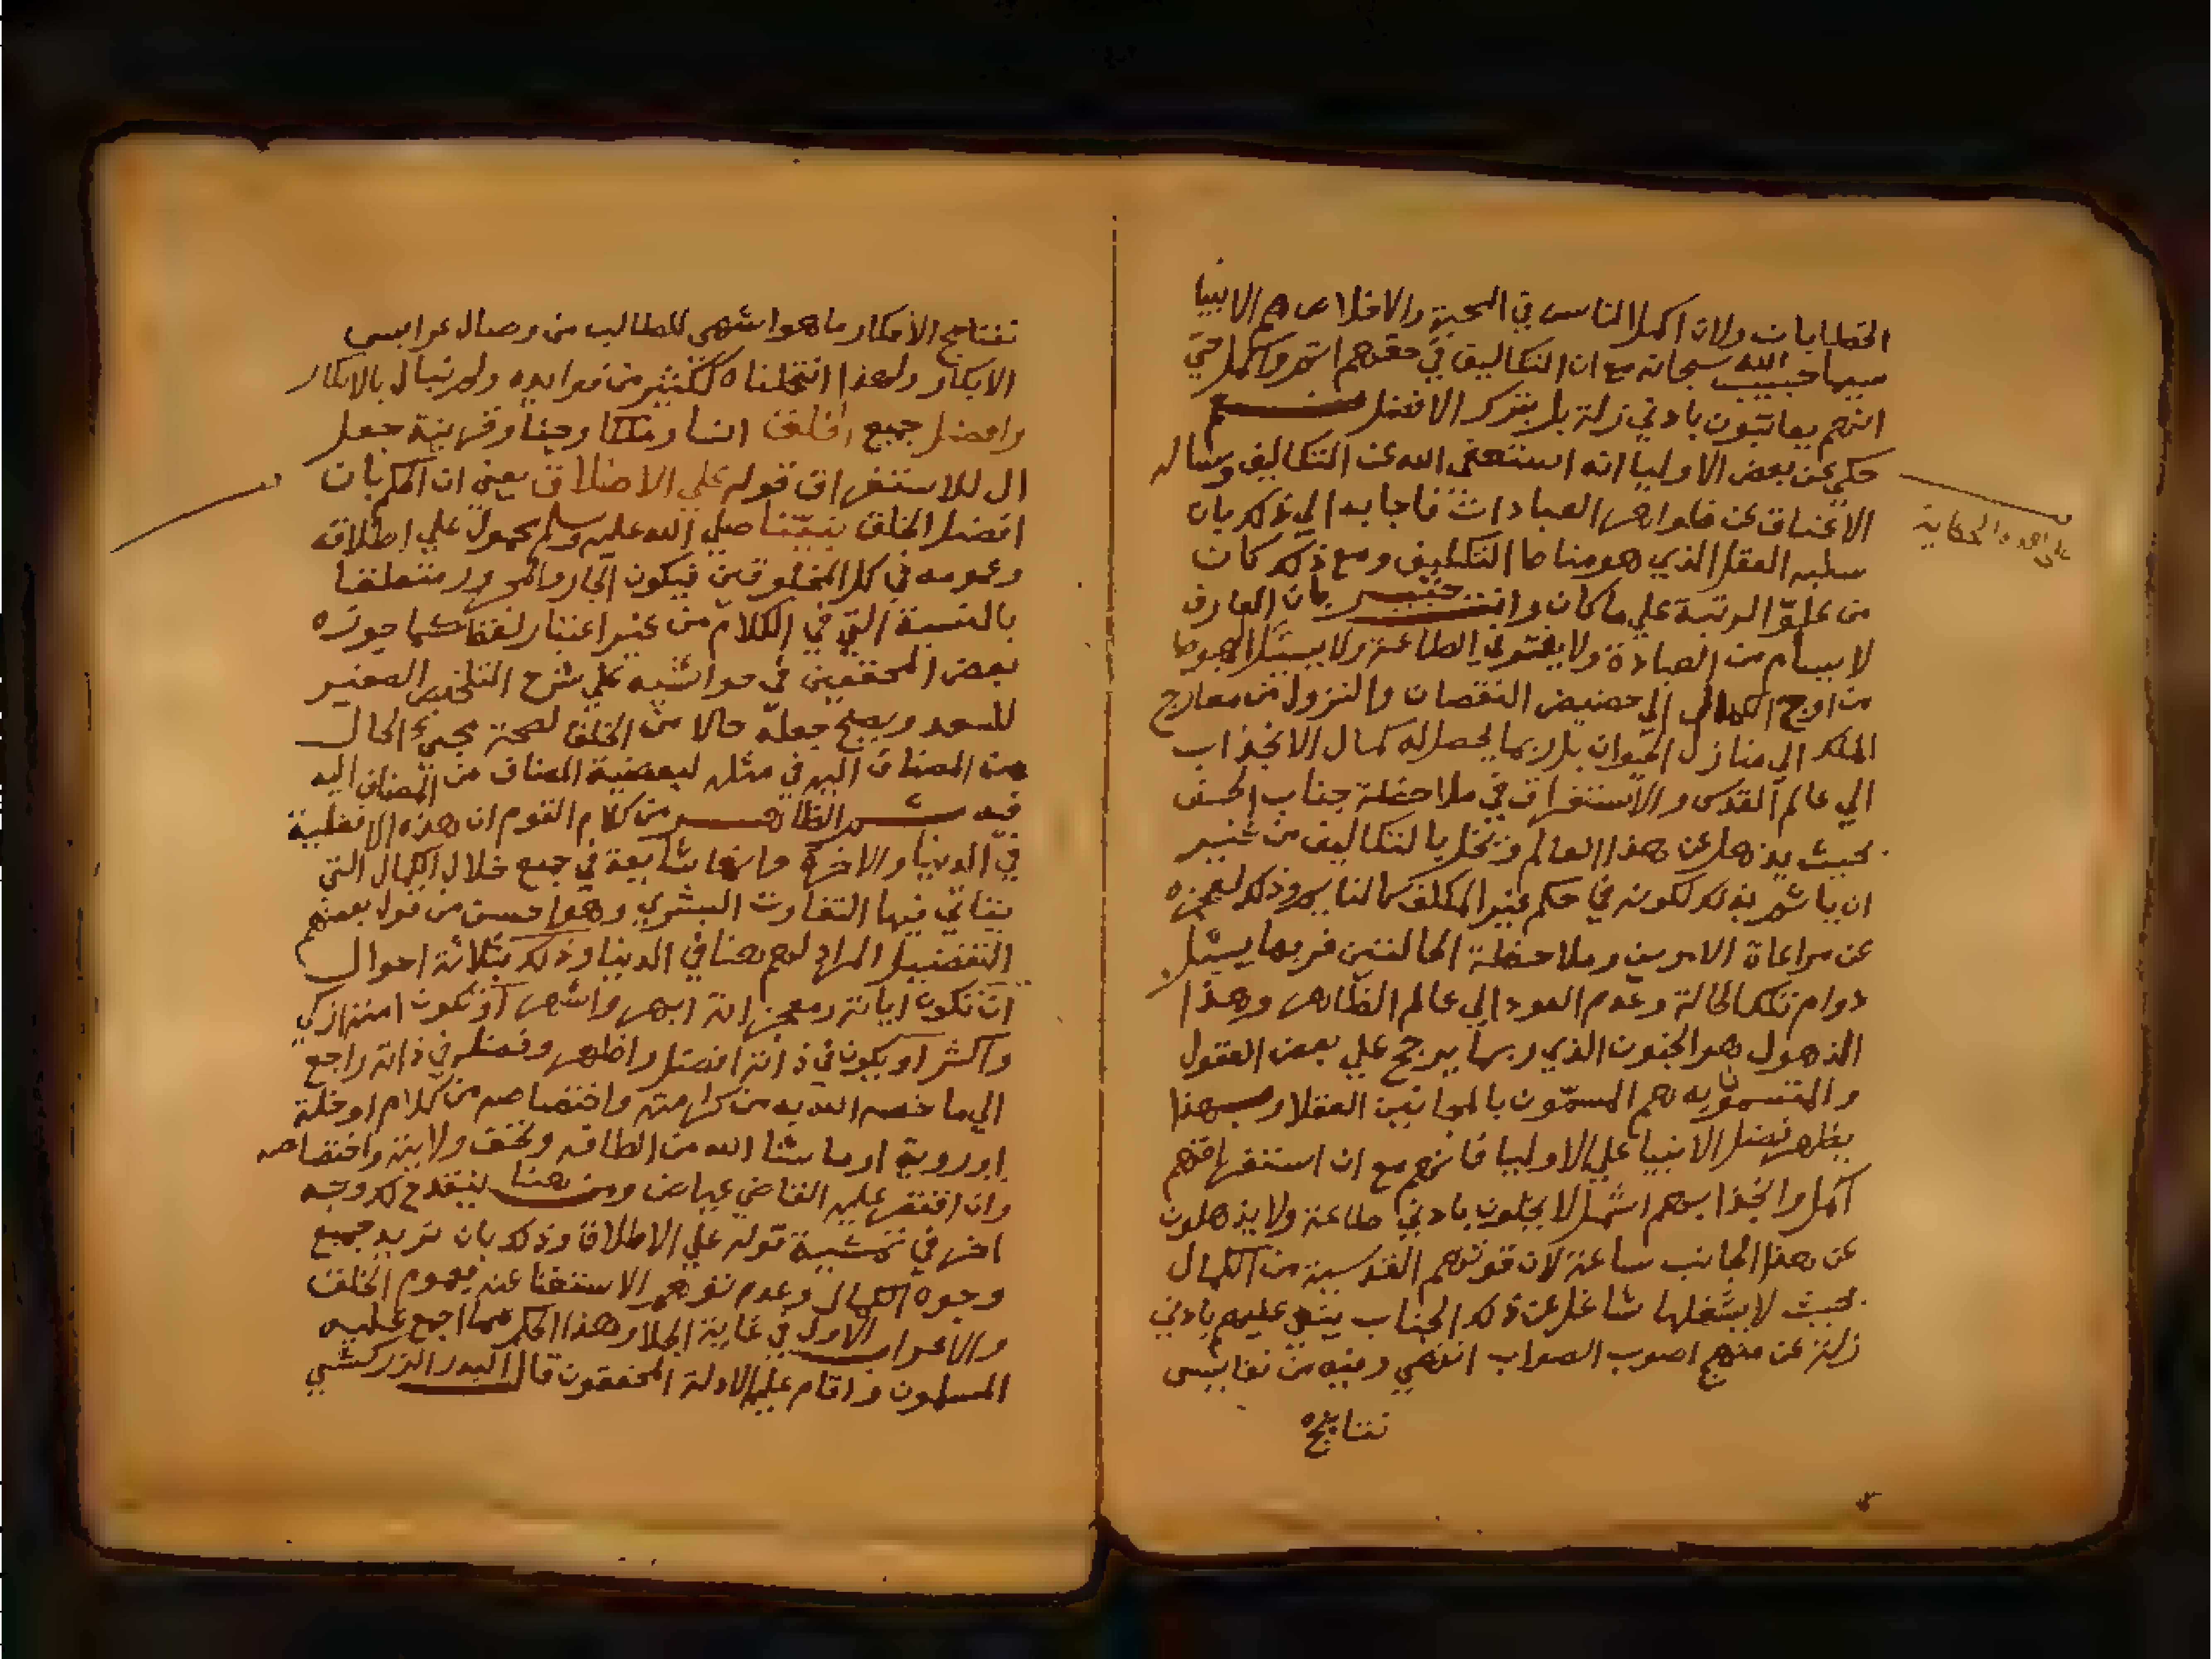 الخطابات ولان اكمل الناس في المحبة والاخلاص هم الانبيا
سيما حبيب الله سبحانه مع ان التكاليف في حقهم اتم واكمل حتي
انهم يعاتبون بادني زلة بل بترك الافضل نعم
حكي عن بعض الاوليا انه استعفي الله عن التكاليف وساله
الاعتاق عن ظواهر العبادات فاجابه الي ذلك بان
سلبه العقل الذي هو مناط التكليف ومع ذلك كان
من علوّ الرتبة علي ما كان وانت خبير بان العارف
لا يسام من العبادة ولا يفتر في الطاعة ولا يسئل الهبوط
من اوج الكمال الي حضيض النقصان والنزول من معارج
الملك الي منازل الحيوان بل ربما يحصل له كمال الانجذاب
الي عالم القدس والاستغراق في ملاحظة جناب الحسن
بحيث يذهل عن هذا العالم ويخل بالتكاليف من غير
ان ياثم بذلك لكونه في حكم غير المكلف كالنايم وذلك لعجزه
عن مراعاة الامرين وملاحظة الحالتين فربما يسئل
دوام تلك الحالة وعدم العود الي عالم الظاهر وهذا
الذهول هو الجنون الذي ربما يرجح علي بعض العقول
والمتسمون به هم المسمّون بالمجانين العقلا وبهذا
يظهر فضل الانبيا علي الاوليا فانهم مع ان استغراقهم
اكمل وانجذابهم اشمل لا يخلون بادني طاعة ولا يذهلون
عن هذا الجانب ساعة لان قوتهم القدسية من الكمال
بحيث لا يشغلها شاغل عن ذلك الجناب ينعي عليهم بادني
زلة عن منهج اصوب الصواب انتهي وفيه من نفايس
نتايج
الحكاية
نتايج الافكار ما هو اشهي للطالب من وصال عرايس
الابكار ولهذا انتحلناه ككثير من فوايده ولم نبال بالانكار
وافضل جميع الخلق انسا وملكا وجنا وقرينة جعل
ال للاستغراق قوله علي الاطلاق يعني ان الحكم بان
افضل الخلق نبيّنا صلي الله عليه وسلم محمول علي اطلاقه
وعمومه في كل المخلوقين فيكون الجار والمجرور متعلقا
بالنسبة التي في الكلام من غير اعتبار لفظ كما جوزه
بعض المحققين في حواشيه علي شرح التلخيص الصغير
للسعد ويصح جعله حالا من الخلق لصحة مجيء الحال
من المضاف اليه في مثله لبعضية المضاف من المضاف اليه
فيه ثم الظاهر من كلام القوم ان هذه الافضلية
في الدنيا والاخرة وانها شايعة في جميع خلال الكمال التي
يتاتي فيها التفاوت البشري وهو احسن من قول بعضهم
التفضيل المراد لهم هنا في الدنيا وذلك بثلاثة احوال
ان تكون اياته ومعجزاته ابهر واشهر او تكون امته ازكي
واكثر او يكون في ذاته افضل واظهر وفضله في ذاته راجع
الي ما خصه الله به من كرامته واختصاصه من كلام او خلة
او روية او ما شا الله من الطافه وتحف ولايته واختصاصه
وان اقتصر عليه القاضي عياض ومن هنا ينقدح لك وجه
اخر في تمشية قوله علي الاطلاق وذلك بان تريد جميع
وجوه الكمال وعدم توهم الاستغنا عنه بعموم الخلق
والاعراب الاول في غاية الجلا وهذا الحكم مما اجمع عليه
المسلمون واقام عليه الادلة المحققون قال البدر الزركشي